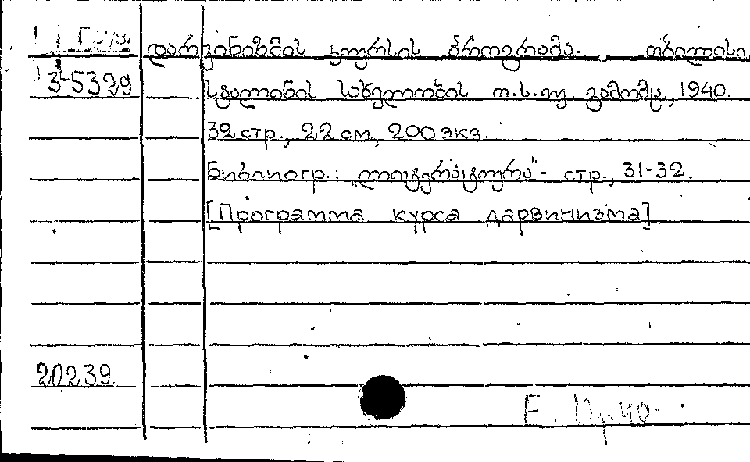 Груз. დარვინიზმის კურსის პროგრამა. თბილისი
3-5329 სტალინის სახელობის თ.ს.უ. გამომც, 1940.
32 стр., 22 см, 200 экз.
Библиогр.: „ლიტერატურა“ - стр., 31-32.
[Программа курса дарвинизма]
20239